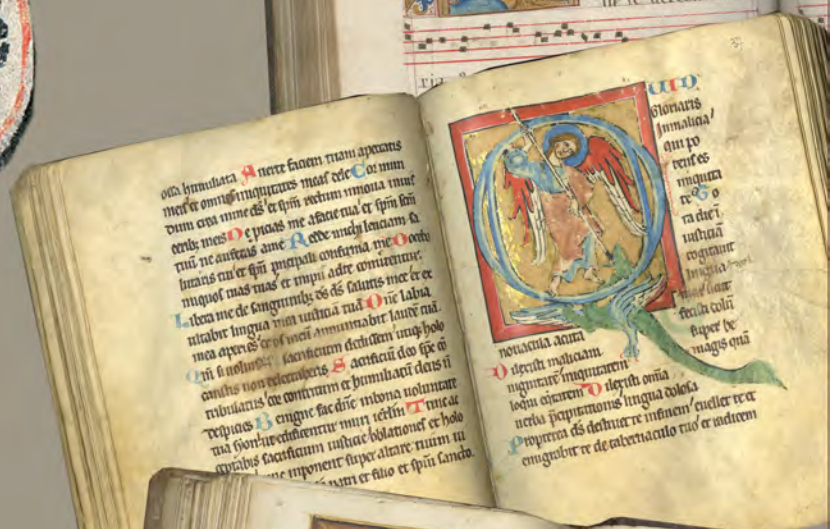 ria
ossa humiliata Auerte faciem tuam apeccatis
meis et omnes iniquitates meas dele Cor mun
dum crea inme ds et spm rectum innoua inuis
ceribz meis Ne picias me afacie tua et spm scm
tuu ne auferas ame Redde michi leticiam sa
lutaris tui et spu pncipali confirma me Docebo
iniquos uias tuas et impii adte conuertentur
Libera me de sanguinibz ds ds salutis mee et ex
ultabit lingua mea iusticia tua Dne labia
mea aperies et os meu annuntiabit laude tua
Qm si uoluisses sacrificium dedissem utiqz holo
caustis non delectaberis Sacrificiu deo sps co
tribulatus cor contritum et humiliatu deus n
despicies Benigne fac dne inbona uoluntate
tua syon ut edificentur muri ierlm Tunc ac
ceptabis sacrificium iusticie oblationes et holo
imponent super altare tuum ui
patri et filio et spui sancto
QUID
Gloriaris
Inmalicia
qui po
tens es
iniquita
te To
ta die i
iusticia
cogitauit
lingua
sicut
fecisti dolu
nouacula acuta
Dilexisti maliciam super be
nignitate iniquitatem magis qua
loqui equitatem Dilexisti omia
uerba pcipitationis lingua dolosa
Propterea ds destruet te infinem euellet te et
emigrabit te de tabernaculo tuo et radicem